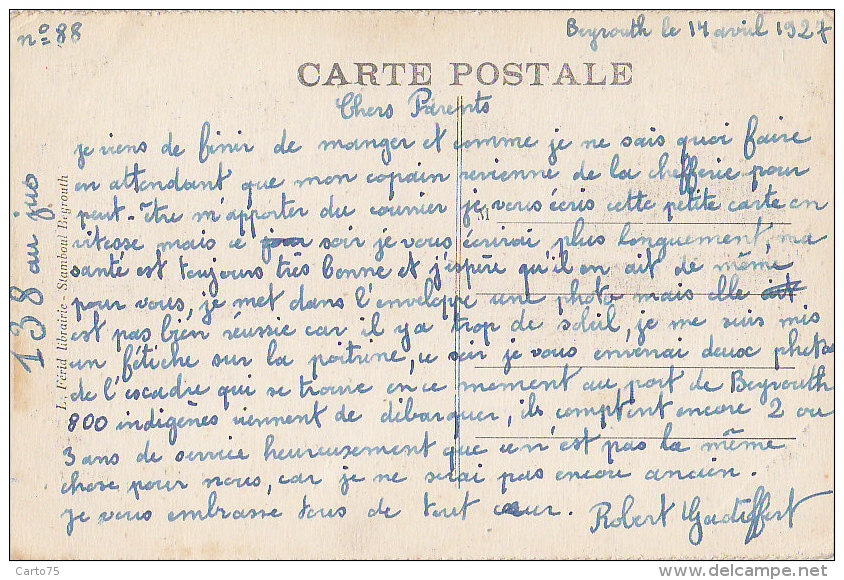 n° 88
Beyrouth le 14 avril 1927
CARTE POSTALE
Chers Parents
je viens de finir de manger et comme je ne sais quoi faire
en attendant que mon copain revienne de la chefferie pour
peut-être m'apporter du courrier je vous écris cette petite carte en
vitesse mais ce jour soir je vous écrirai plus longuement, ma
santé est toujours très bonne et j'espère qu'il en ait de même
pour vous, je met dans l'enveloppe une photo mais elle ait
est pas bien réussie car il y a trop de soleil, je me suis mis
un fétiche sur la poitrine, ce soir je vous enverrai deux photos
de l'escadre qui se trouve en ce moment au port de Beyrouth
800 indigènes viennent de débarquer, ils comptent encore 2 ou
3 ans de service heureusement que ce n'est pas la même
chose pour nous, car je ne serai pas encore ancien.
je vous embrasse tous de tout cœur. Robert
138 au jus
L. Férid librairie - Stamboul Beyrouth
Carto75
delcampe.net